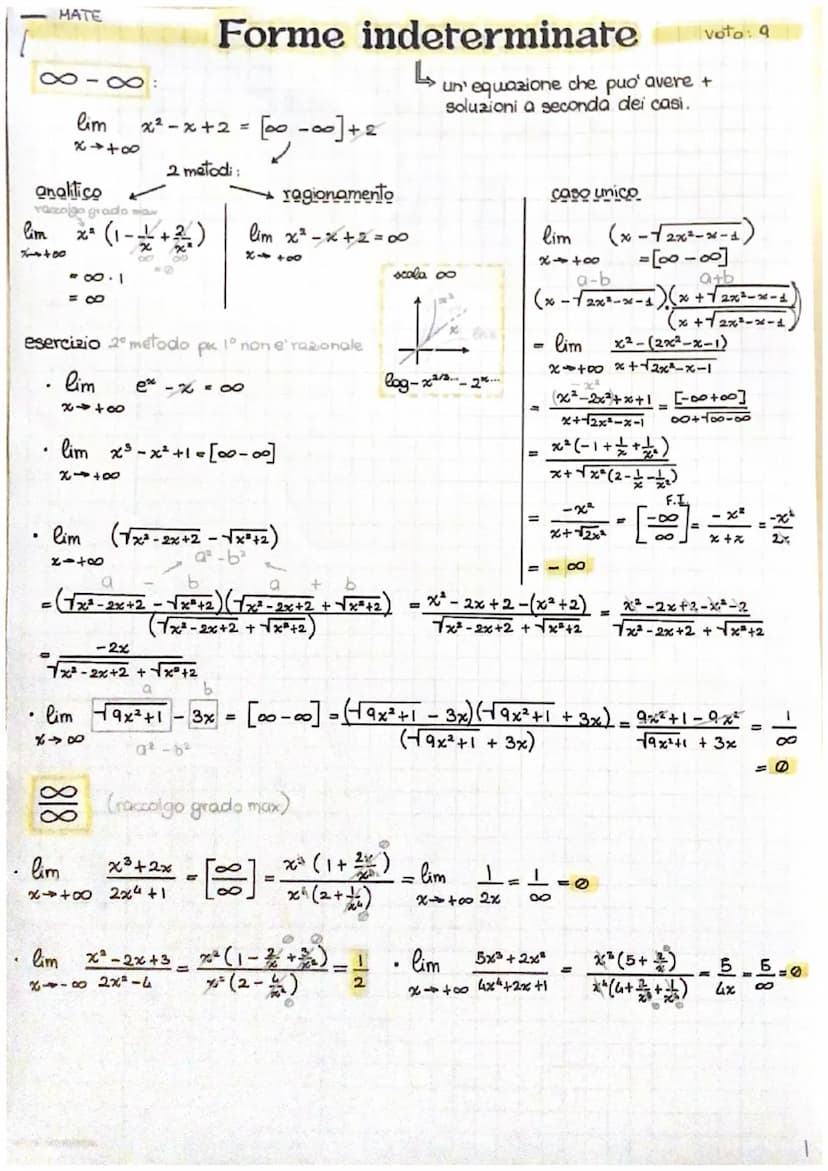 MATE
Forme indeterminate
voto: 9
↳ un'equazione che puo' avere +
soluzioni a seconda dei casi.
∞ - ∞ :
lim x² - x + 2 = [∞ - ∞] + 2
x → +∞
2 metodi:
analitico
raccolgo grado max
lim x² (1 - 1/x + 2/x²)
x → +∞
= ∞ · 1
= ∞
ragionamento
lim x² - x + 2 = ∞
x → +∞
scala ∞
log - x^2/3... - 2^x...
esercizio 2° metodo pk 1° non e' razionale
· lim eˣ - x = ∞
x → +∞
· lim x³ - x² + 1 = [∞ - ∞]
x → +∞
caso unico
lim (x - √2x² - x - 1)
x → +∞ = [∞ - ∞]
a-b a+b
(x - √2x² - x - 1) · (x + √2x² - x - 1) / (x + √2x² - x - 1)
= lim x² - (2x² - x - 1) / x + √2x² - x - 1
x → +∞
- x²
= (x² - 2x² + x + 1) / x + √2x² - x - 1 = [-∞ + ∞] / ∞ + √∞ - ∞
= x² (-1 + 1/x + 1/x²) / x + √x² (2 - 1/x - 1/x²)
F.I.
= -x² / x + √2x² = [-∞/∞] = -x² / x + x = -x² / 2x
= - ∞
· lim (√x² - 2x + 2 - √x² + 2)
x → +∞ a² - b²
a - b a + b
= (√x² - 2x + 2 - √x² + 2)(√x² - 2x + 2 + √x² + 2) / (√x² - 2x + 2 + √x² + 2) = x² - 2x + 2 - (x² + 2) / √x² - 2x + 2 + √x² + 2 = x² - 2x + 2 - x² - 2 / √x² - 2x + 2 + √x² + 2
= -2x / √x² - 2x + 2 + √x² + 2
a b
· lim √9x² + 1 - 3x = [∞ - ∞] = (√9x² + 1 - 3x)(√9x² + 1 + 3x) / (√9x² + 1 + 3x) = 9x² + 1 - 9x² / √9x² + 1 + 3x = 1/∞
x → ∞ a² - b²
= 0
∞/∞ (raccolgo grado max)
· lim x³ + 2x / 2x⁴ + 1 = [∞/∞] = x³ (1 + 2x/x³) / x⁴ (2 + 1/x⁴) = lim 1/2x = 1/∞ = 0
x → +∞ x → +∞
· lim x² - 2x + 3 / 2x² - 4 = x² (1 - 2/x + 3/x²) / x² (2 - 4/x²) = 1/2
x → -∞
· lim 5x³ + 2x² / 4x⁴ + 2x + 1 = x³ (5 + 2/x) / x⁴ (4 + 2/x³ + 1/x⁴) = 5/4x = 5/∞ = 0
x → +∞
1